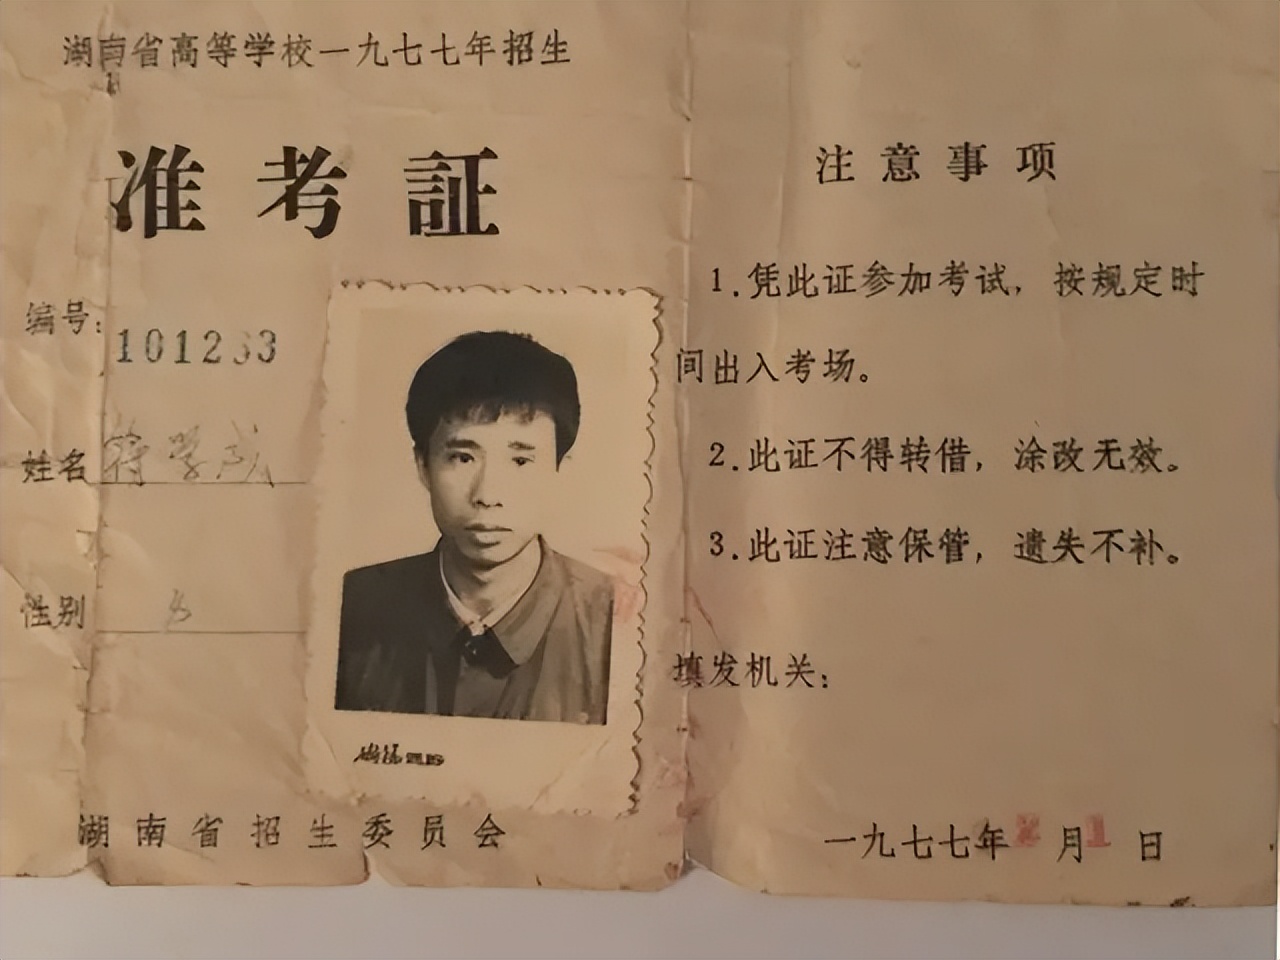 湖南省高等学校一九七七年招生
准考証
编号：
姓名
性别
湖南省招生委员会
注意事项
1.凭此证参加考试，按规定时
间出入考场。
2.此证不得转借，涂改无效。
3.此证注意保管，遗失不补。
填发机关：
一九七七年 月1日